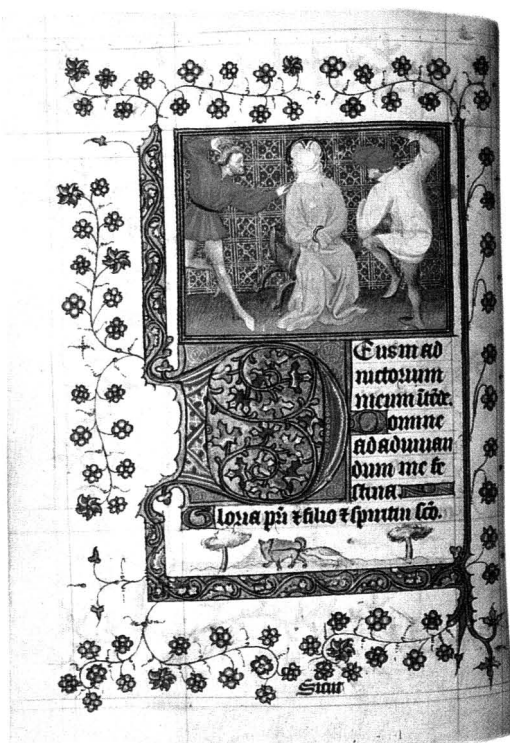 Deus in ad
iutorium
meum ītēde.
Domine
ad adiuuan
dum me fe
stina.
Gloria pr̄i ⁊ filio ⁊ spiritui sc̄o.
Sicut